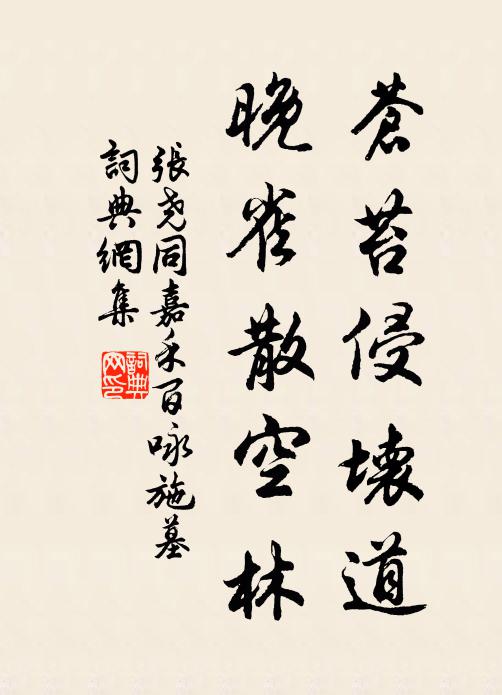 蒼苔侵壞道
晚雀散空林
張堯同嘉禾百咏施墓
詞典網集
詞典網印